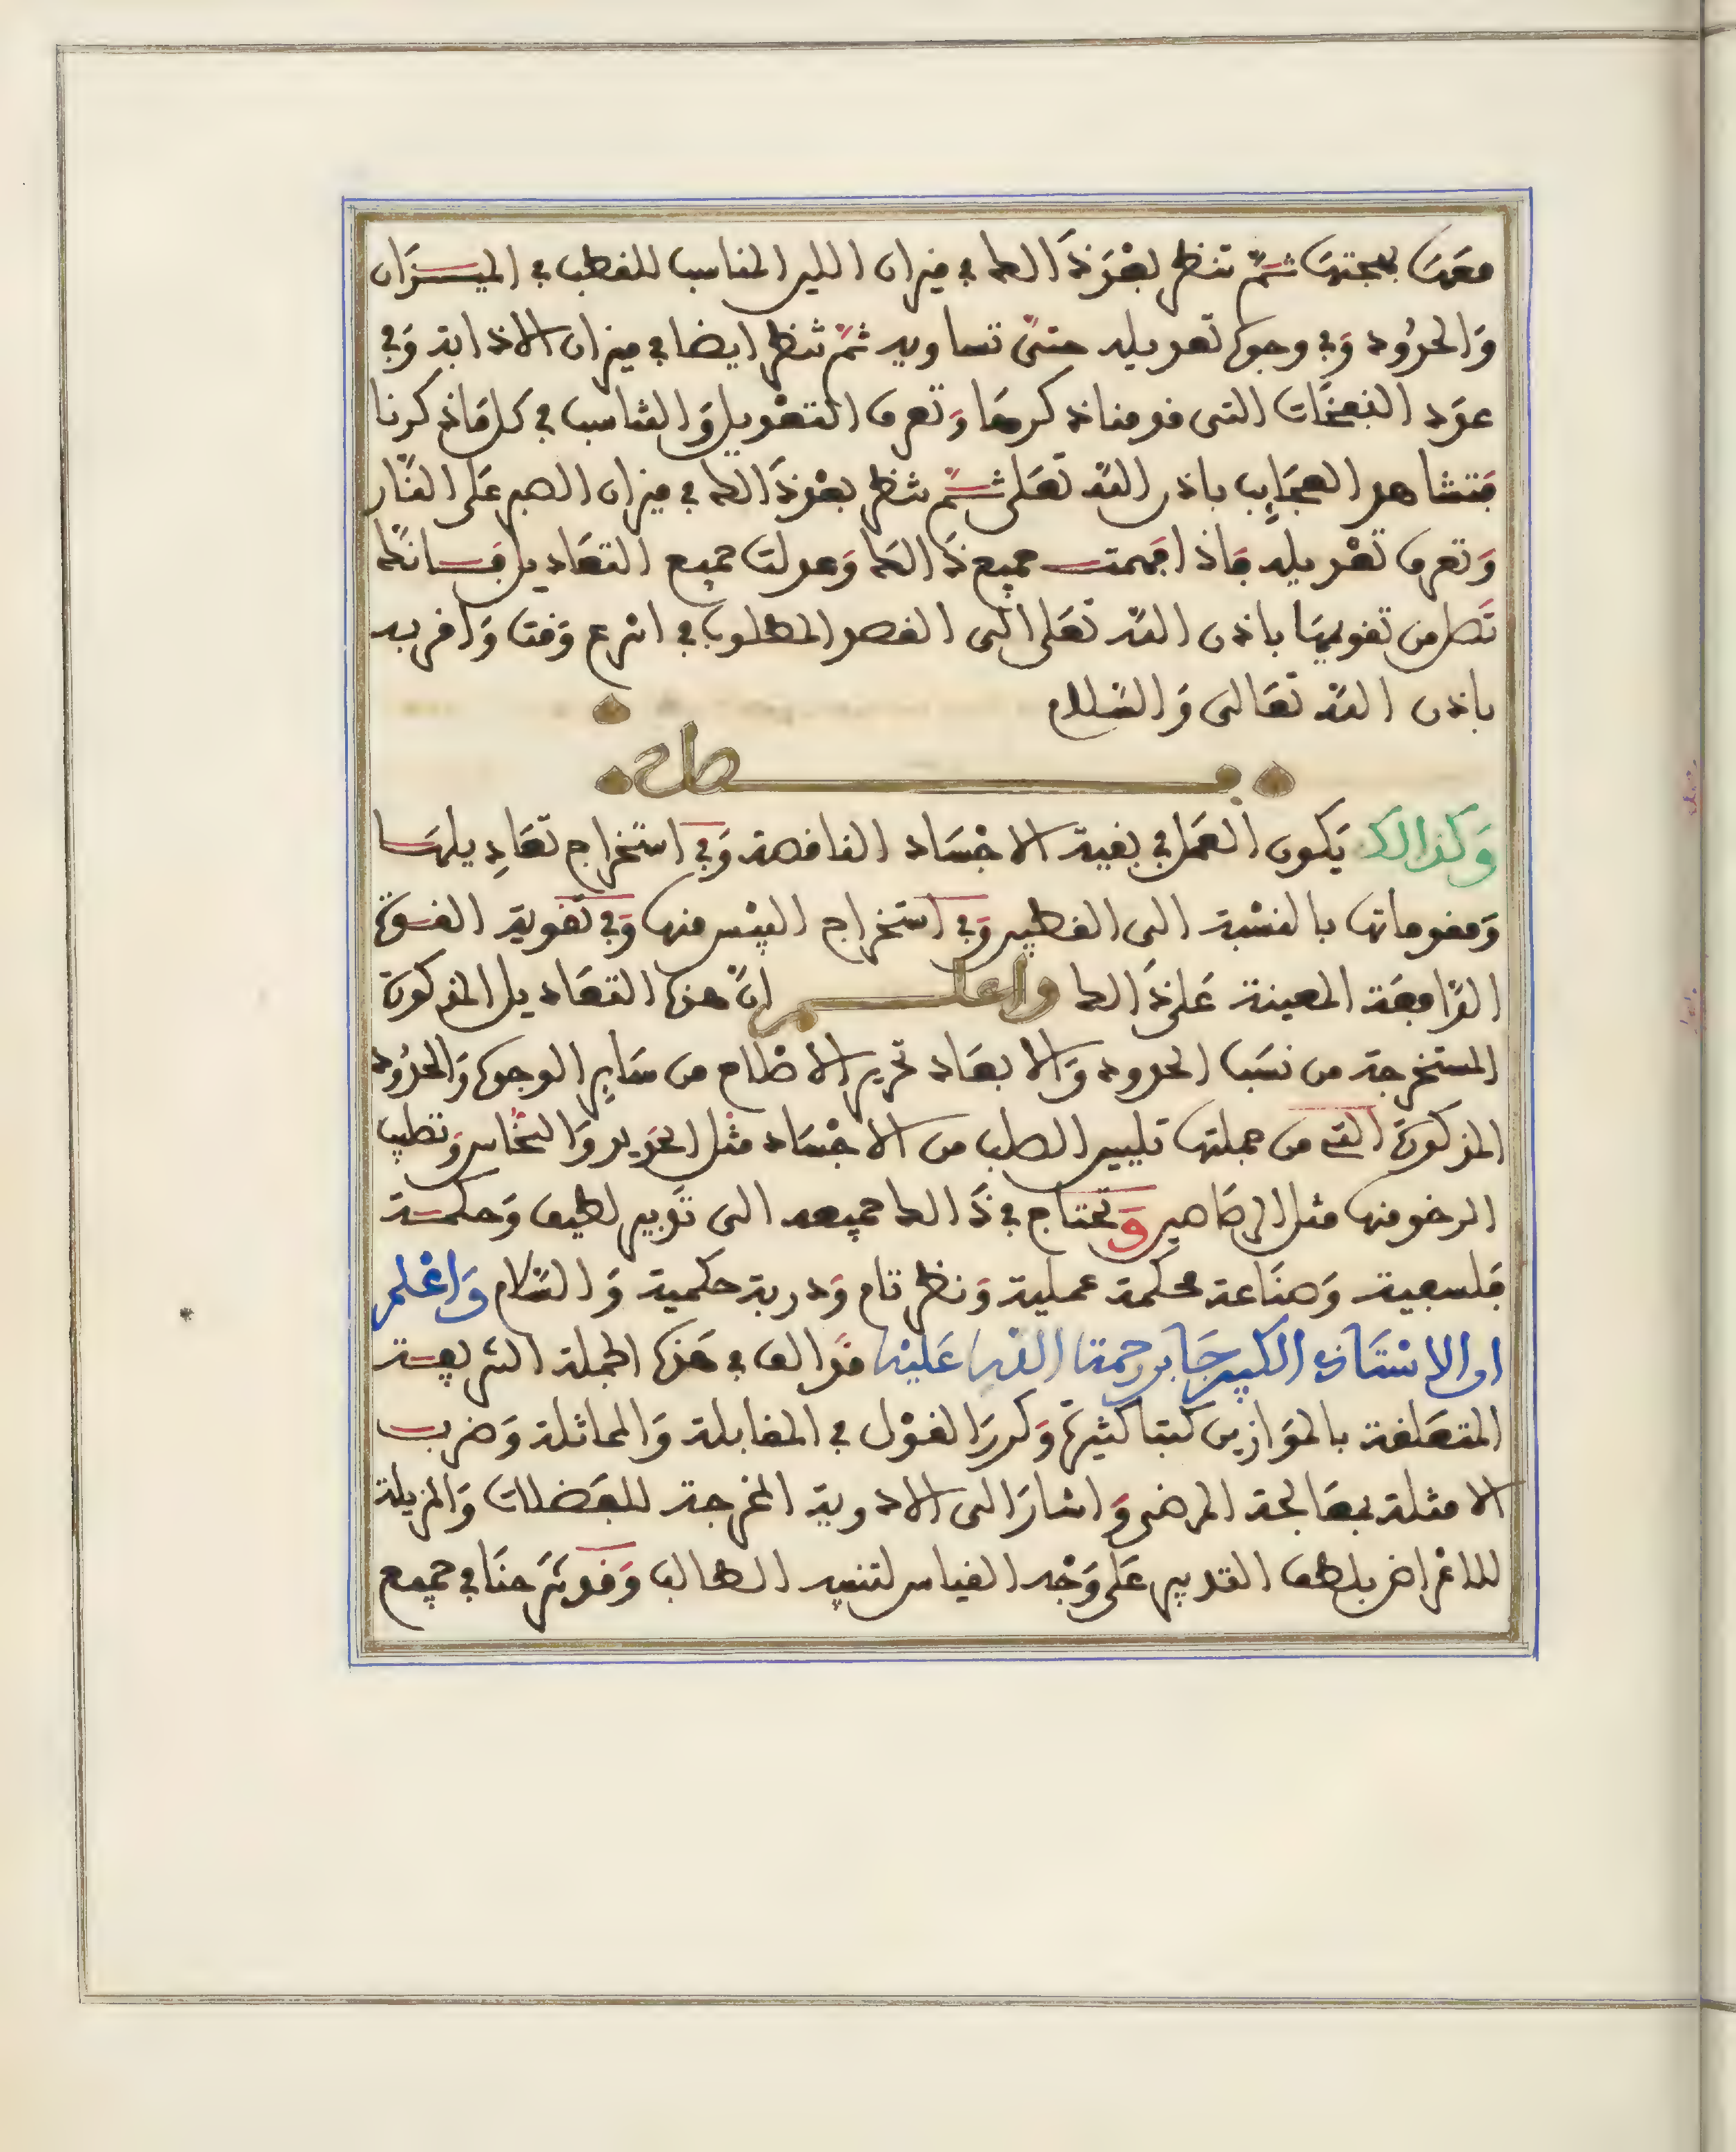 معها بهجتها ثم تنظر بعد ذالك في ميزان اللين المناسب للقطب في الميزان
والحدود وفي وجوه تعديله حتى تساويه ثم تنظر ايضا في ميزان الاذابة وفي
عدد النفخات التي قدمنا ذكرها وتعرف التعديل والتناسب في كل ما ذكرنا
فتشاهد العجايب باذن الله تعلى ثم تنظر بعد ذالك في ميزان الصبر على النار
وتعرف تعديله فاذا فهمت جميع ذالك وعدلت جميع التعاديل فانك
تصل من تقويمها باذن الله تعلى الى القصد المطلوب في اسرع وقت واقربه
باذن الله تعالى والسلام
فصل
وكذالك يكون العمل في بقية الاجساد الناقصة وفي استخراج تعاديلها
ومقوماتها بالنسبة الى القطبين وفي استخراج اليبس منها وفي تقوية القوة
الدافعة المعينة على ذالك واعلم ان هذه التعاديل المذكورة
المستخرجة من نسب الحدود والابعاد تحرير الاحكام من ساير الوجوه والحدود
المذكورة التي من جملتها تليين الصلب من الاجساد مثل الحديد والنحاس وتصليب
الرخو منها مثل الرصاصين وتحتاج في ذالك جميعه الى تدبير لطيف وحكمة
فلسفية وصناعة محكمة عملية ونظر تام ودربة حكمية والسلام واعلم
ان الاستاذ الكبير جابر رحمة الله عليه قد الف في هذه الجملة الشريفة
المتعلقة بالموازين كتبا كثيرة وكرر القول في المقابلة والمماثلة وضرب
الامثلة بمعالجة المرضى واشار الى الادوية المخرجة للفضلات والمزيلة
للاعراض بلطف التدبير على وجه القياس لتنبيه الطالب وقد شرحنا في جميع